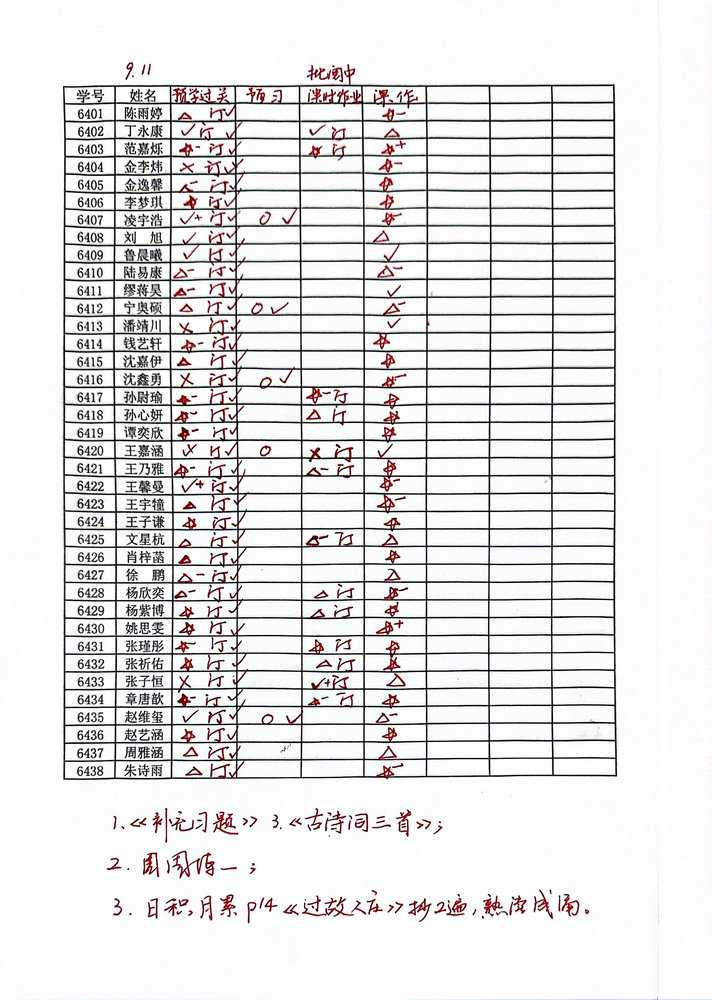 9.11 批阅中
学号 姓名 预学过关 预习 课时作业 课作
6401 陈雨婷 △ 订✓ ☆-
6402 丁永康 ✓订✓ ✓订 △
6403 范嘉烁 ☆-订✓ ☆订 ☆+
6404 金李炜 ×订✓ ☆-
6405 金逸馨 订✓ ☆
6406 李梦琪 ☆订✓ ☆
6407 凌宇浩 ✓+订✓ ○✓ ☆-
6408 刘旭 ✓订✓ △
6409 鲁晨曦 ✓订✓ ✓
6410 陆易康 △-订✓ △-
6411 缪蒋昊 △-订✓ ✓
6412 宁奥硕 △订✓ ○✓ △-
6413 潘靖川 ×订✓ ✓
6414 钱艺轩 ☆-订✓ ☆
6415 沈嘉伊 △订✓ ☆
6416 沈鑫勇 ×订✓ ○✓ ☆-
6417 孙尉瑜 ☆-订✓ ☆-订 ☆
6418 孙心妍 ☆-订✓ △订 ☆
6419 谭奕欣 ☆-订✓ ☆
6420 王嘉涵 订✓ ○ ×订 ✓
6421 王乃雅 ☆-订✓ △-订 ☆
6422 王馨曼 ✓+订✓ ☆-
6423 王宇犝 △订✓ ☆-
6424 王子谦 ☆订✓ ☆
6425 文星杭 △订✓ △-订 △
6426 肖梓菡 △订✓ ☆
6427 徐鹏 △-订✓ △
6428 杨欣奕 △-订✓ △订 ☆-
6429 杨紫博 ☆订✓ △订 ☆
6430 姚思雯 ☆订✓ ☆+
6431 张瑾彤 ☆-订✓ ☆订 ☆
6432 张祈佑 ☆订✓ △订 ☆
6433 张子恒 ×订✓ ✓+订 △
6434 章唐歆 ☆-订✓ ☆-订 ☆
6435 赵维玺 ✓订✓ ○✓ △-
6436 赵艺涵 ☆订✓ ☆
6437 周雅涵 △订✓ △
6438 朱诗雨 △订✓ ☆-
1.《补充习题》3.《古诗词三首》;
2.周周练一;
3.日积月累p14《过故人庄》抄2遍,熟读成诵。